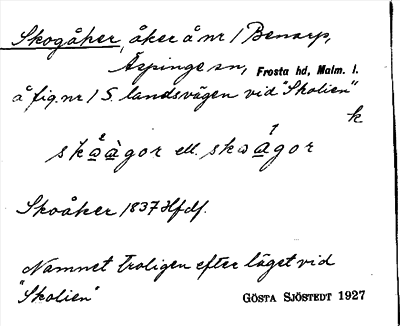 Skogåker, åker å nr 1 Benarp,
Äspinge sn, Frosta hd, Malm. l.
å fig. nr 1 S. landsvägen vid "Skolien"
k
skāàgor ell. skɷágor
Skoåker 1837 Hfdf.
Namnet troligen efter läget vid
"Skolien"
GÖSTA SJÖSTEDT 1927